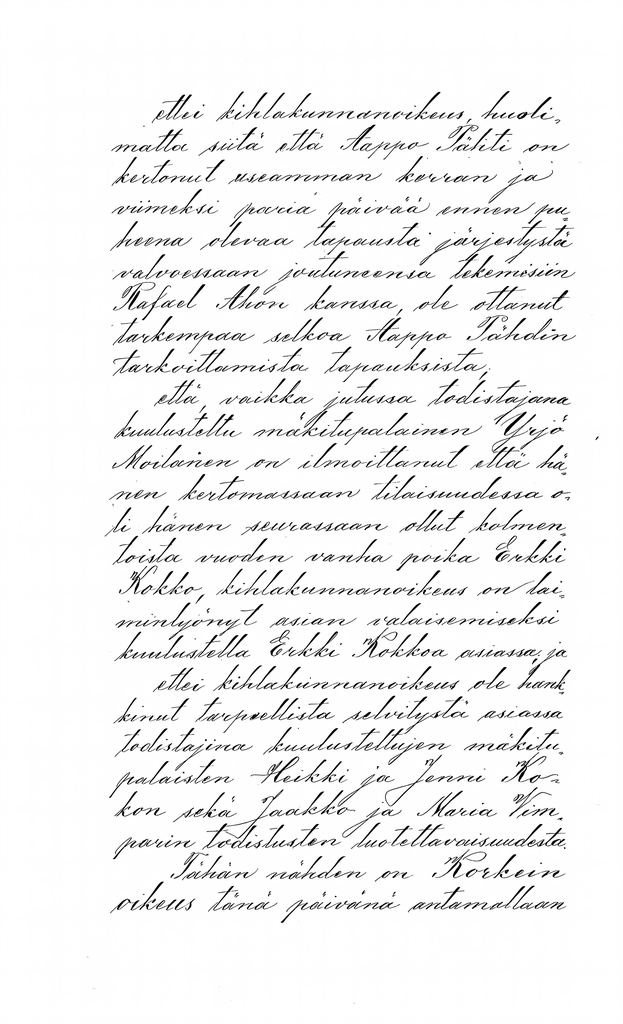 ettei kihlakunnanoikeus, huoli-
matta siitä että Aappo Tähti on
kertonut useamman kerran ja
viimeksi paria päivää ennen pu-
heena olevaa tapausta järjestystä
valvoessaan joutuneensa tekemisiin
Rafael Ahon kanssa, ole ottanut
tarkempaa selkoa Aappo Tähdin
tarkoittamista tapauksista;
että, vaikka jutussa todistajana
kuulusteltu mäkitupalainen Yrjö
Moilanen on ilmoittanut että hä-
nen kertomassaan tilaisuudessa o-
li hänen seurassaan ollut kolmen-
toista vuoden vanha poika Erkki
Kokko, kihlakunnanoikeus on lai-
minlyönyt asian valaisemiseksi
kuulustella Erkki Kokkoa asiassa; ja
ettei kihlakunnanoikeus ole hank-
kinut tarpeellista selvitystä asiassa
todistajina kuulusteltujen mäkitu-
palaisten Heikki ja Jenni Ko-
kon sekä Jaakko ja Maria Vim-
parin todistusten luotettavaisuudesta.
Tähän nähden on Korkein
oikeus tänä päivänä antamallaan